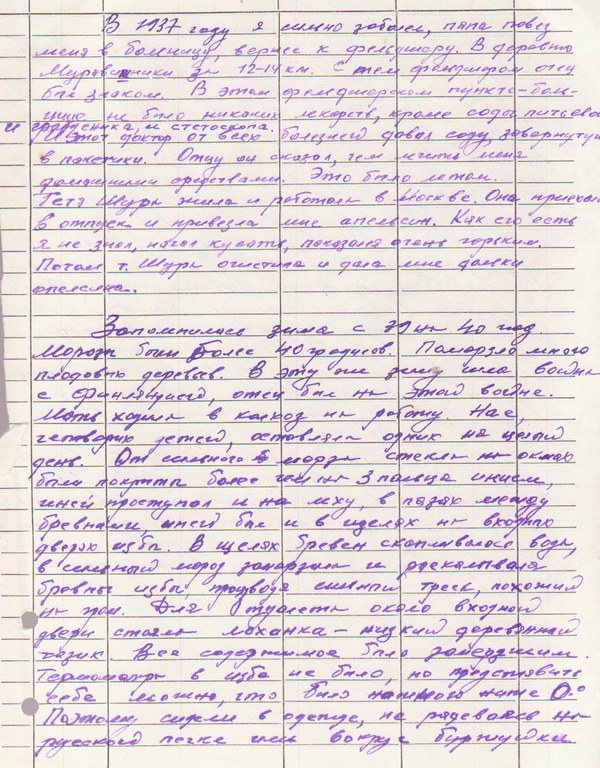 В 1937 году я сильно заболел, папа повез
меня в больницу, вернее к фельдшеру. В деревню
за 12-14 км. С тем фельдшером отец
был знаком. В этом фельдшерском пункте-боль-
нице не было никаких лекарств, кроме соды питьевой
и градусника, и стетоскопа.
Этот доктор от всех болезней давал соду, завернутую
в пакетики. Отцу он сказал, чем лечить меня
домашними средствами. Это было летом.
Тетя Шура жила и работала в Москве. Она приехала
в отпуск и привезла мне апельсин. Как его есть
я не знал, начал кусать, показался очень горьким.
Потом т. Шура очистила и дала мне дольки
апельсина.
Запомнилась зима с 39 на 40 год.
Морозы были более 40 градусов. Померзло много
плодовых деревьев. В эту же зиму шла война
с Финляндией, отец был на этой войне.
Мать ходила в колхоз на работу. Нас,
четверых детей, оставляла одних на целый
день. От сильного мороза стекла на окнах
были покрыты более чем на 3 пальца инеем,
иней проступал и на мху, в пазах между
бревнами иней был и в щелях на входных
дверях избы. В щелях бревен скапливалась вода,
в сильный мороз замерзала и раскалывала
бревны избы, производя сильный треск, похожий
на гром. Для туалета около входной
двери стояла лоханка - низкий деревянный
тазик Все содержимое было замерзшим.
Термометра в избе не было, но представить
себе можно, что было намного ниже 0°
Поэтому сидели в одежде, не раздеваясь на
русской печке или вокруг буржуйки